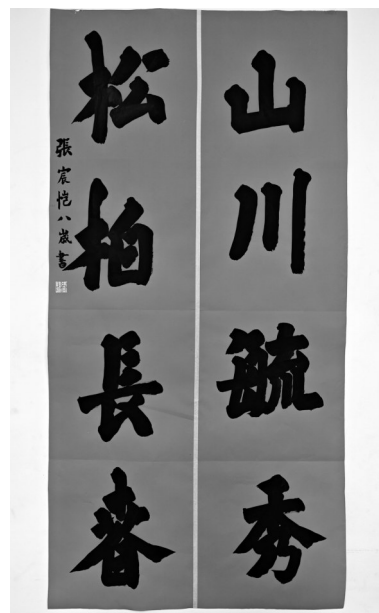 山川毓秀
松柏長春
張宸愷八歲書